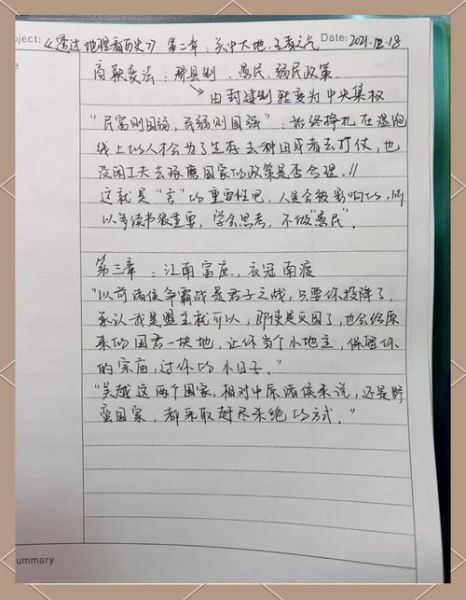 oject: 《透过地理看历史》 第二章：关中大地，王者之气 Date: 2021.12.18
商鞅变法：郡县制、愚民、弱民政策.
由封建制转变为中央集权
"民富则国弱，民弱则国强"：始终挣扎在温饱
线上的人才会为了生存去种田或者去打仗，也
没闲工夫去琢磨国家的政策是否合理.//
这就是"言"的重要性吧，人是会被影响的，所
以多读书很重要，学会思考，不做"愚民".
第三章：江南富庶，衣冠南渡
"以前诸侯争霸战是君子之战，只要你投降了，
承认我是盟主就可以，即使是灭国了，也会给原
来的国君一块地，让你当个小地主，保留你
的宗庙，过你的小日子。"
"吴越这两个国家，相对中原诸侯来说，还是野
蛮国家，都采取赶尽杀绝的方式。"
ummary